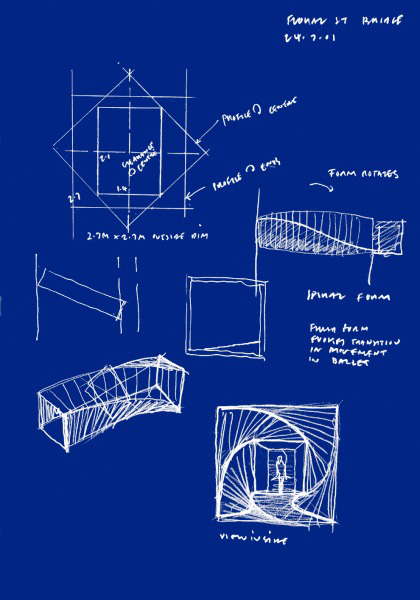 FLORAL ST BRIDGE
24.7.01
PROFILE @ CENTRE
2.1
CLEARANCE
@ CENTRE
1.4
PROFILE @ ENDS
2.7
2.7M x 2.7M OUTSIDE DIM
FORM ROTATES
SPIRAL FORM
FLUID FORM
EVOKES TRANSITION
IN MOVEMENT
IN BALLET
VIEW INSIDE